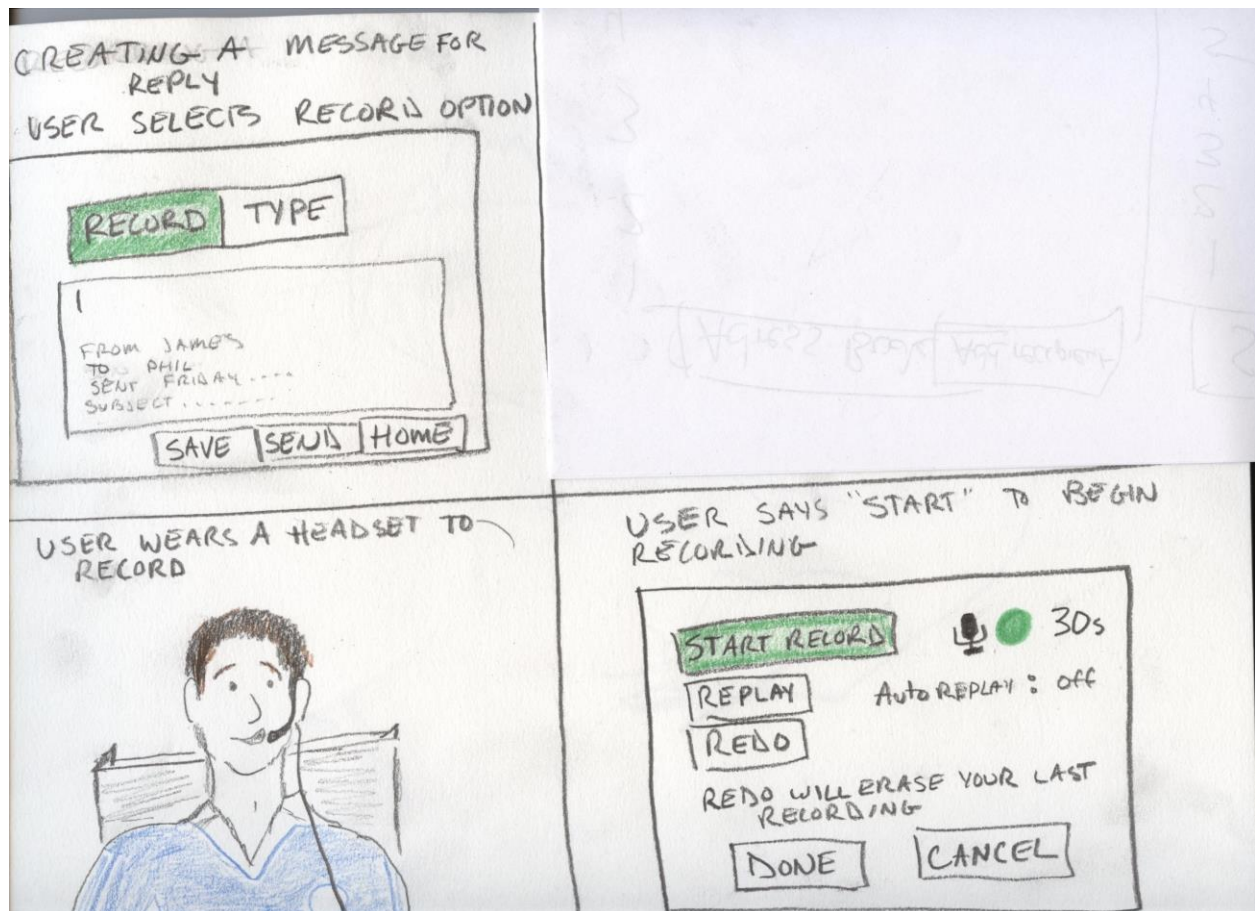 CREATING A MESSAGE FOR
REPLY
USER SELECTS RECORD OPTION
RECORD TYPE
FROM JAMES
TO PHIL
SENT FRIDAY....
SUBJECT........
SAVE SEND HOME
Adress Book Add recipient
USER WEARS A HEADSET TO
RECORD
USER SAYS "START" TO BEGIN
RECORDING
START RECORD 30s
REPLAY Auto REPLAY : off
REDO
REDO WILL ERASE YOUR LAST
RECORDING
DONE CANCEL